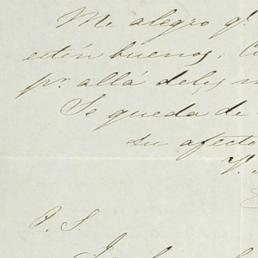 Me alegro qe.
estén buenos. C
pr. allá deles m
Se queda de
su afecto
P. S.